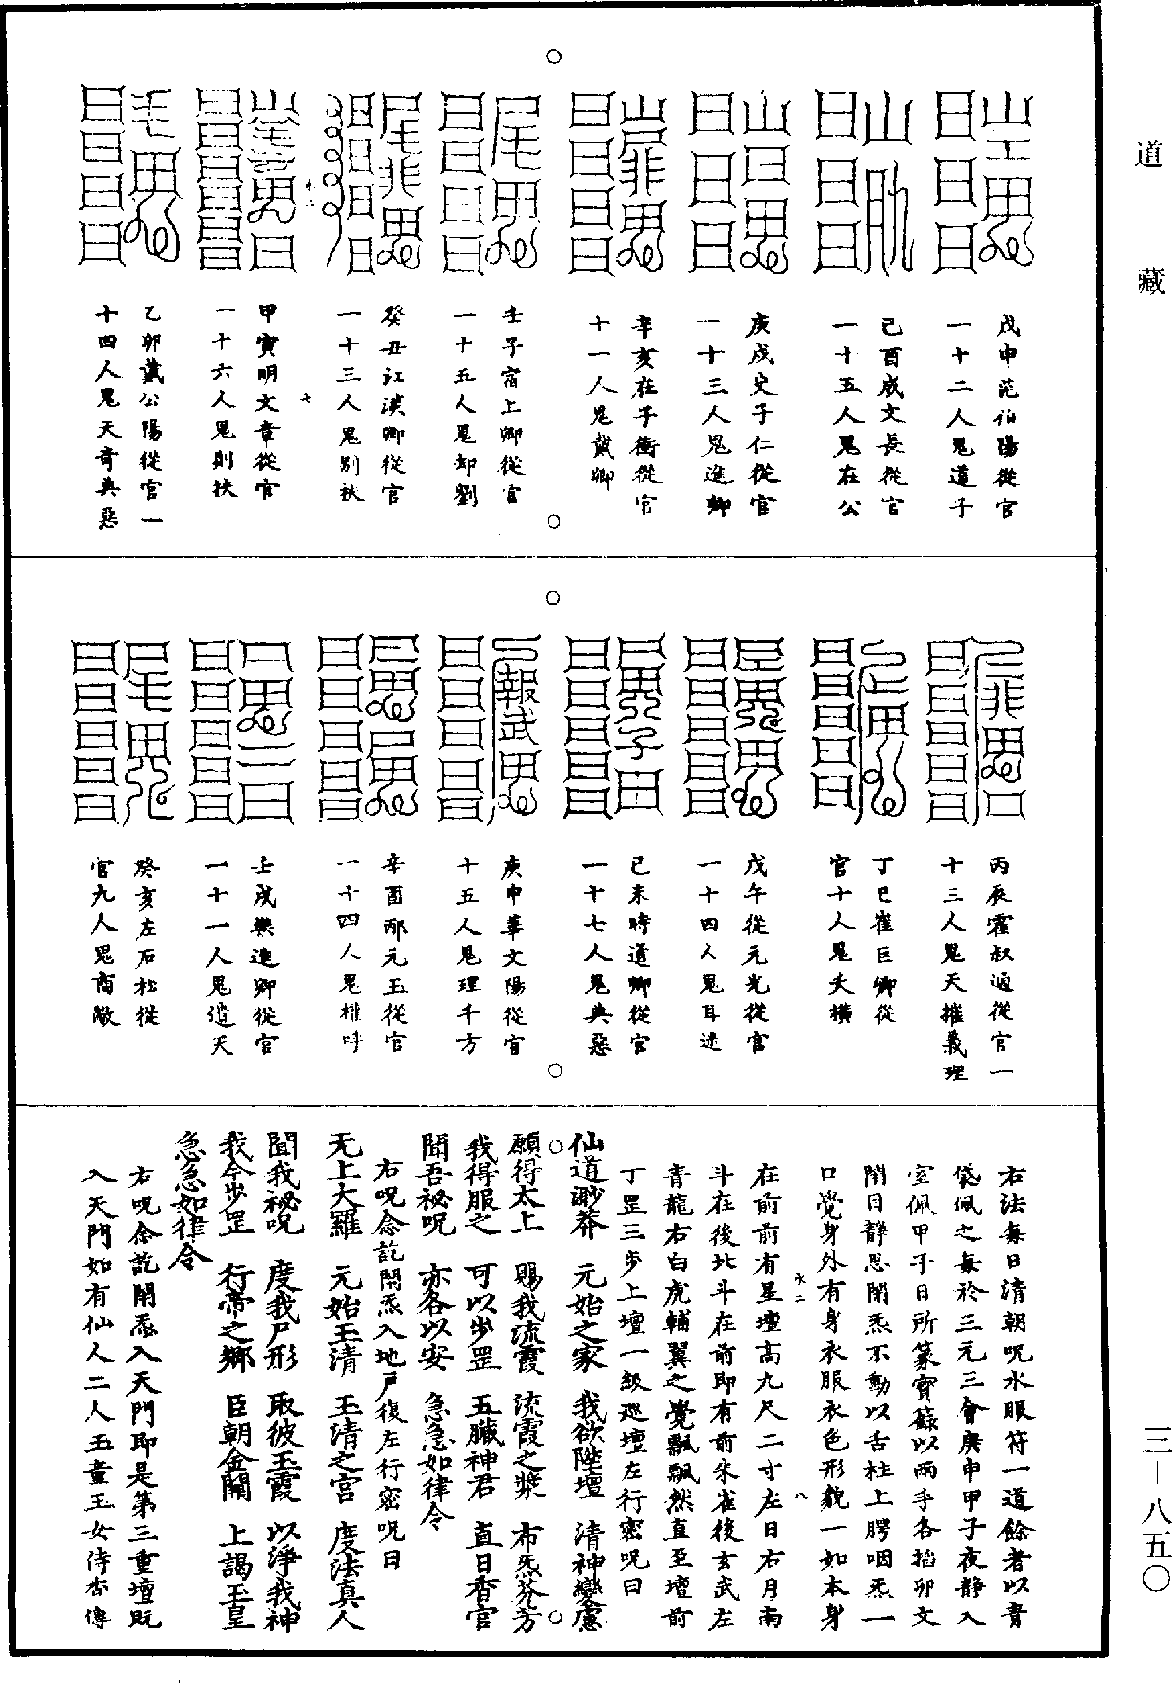 道藏
戊申范伯陽從官
一十二人鬼道子
己酉成文長從官
一十五人鬼在公
庚戌史子仁從官
一十三人鬼進卿
辛亥在子衡從官
十一人鬼戴卿
壬子宿上卿從官
一十五人鬼卸劉
癸丑江漢卿從官
一十三人鬼別狄
甲寅明文章從官
一十六人鬼則扶
乙卯戴公陽從官一
十四人鬼天奇典惡
丙辰霍叔通從官一
十三人鬼天摧義理
丁巳崔巨卿從
官十人鬼夫橫
戊午從元光從官
一十四人鬼耳述
己未時通卿從官
一十七人鬼典惡
庚申華文陽從官
十五人鬼理千方
辛酉邴元玉從官
一十四人鬼摧呼
壬戌樂進卿從官
一十一人鬼道天
癸亥左石松從
官九人鬼商敵
右法每日清朝呪水服符一道餘者以青
袋佩之每於三元三會庚申甲子夜靜入
室佩甲子日所篆寶籙以兩手各掐卯文
閉目靜思閉炁不動以舌柱上腭咽炁一
口覺身外有身衣服衣色形貌一如本身
在前前有星壇高九尺二寸左日右月南
斗在後北斗在前即有前朱雀後玄武左
青龍右白虎輔翼之覺飄飄然直至壇前
丁罡三步上壇一級巡壇左行密呪曰
仙道渺莽 元始之家 我欲陞壇 清神變慮
願得太上 賜我流霞 流霞之漿 布炁芬芳
我得服之 可以步罡 五臟神君 直日香官
聞吾祕呪 亦各以安 急急如律令
右呪念訖閉炁入地戶復左行密呪曰
无上大羅 元始玉清 玉清之宮 度法真人
聞我祕呪 度我尸形 取彼玉霞 以淨我神
我今步罡 行帝之鄉 臣朝金闕 上謁玉皇
急急如律令
右呪念訖閉炁入天門即是第三重壇既
入天門如有仙人二人五童玉女侍香傳
三—八五〇